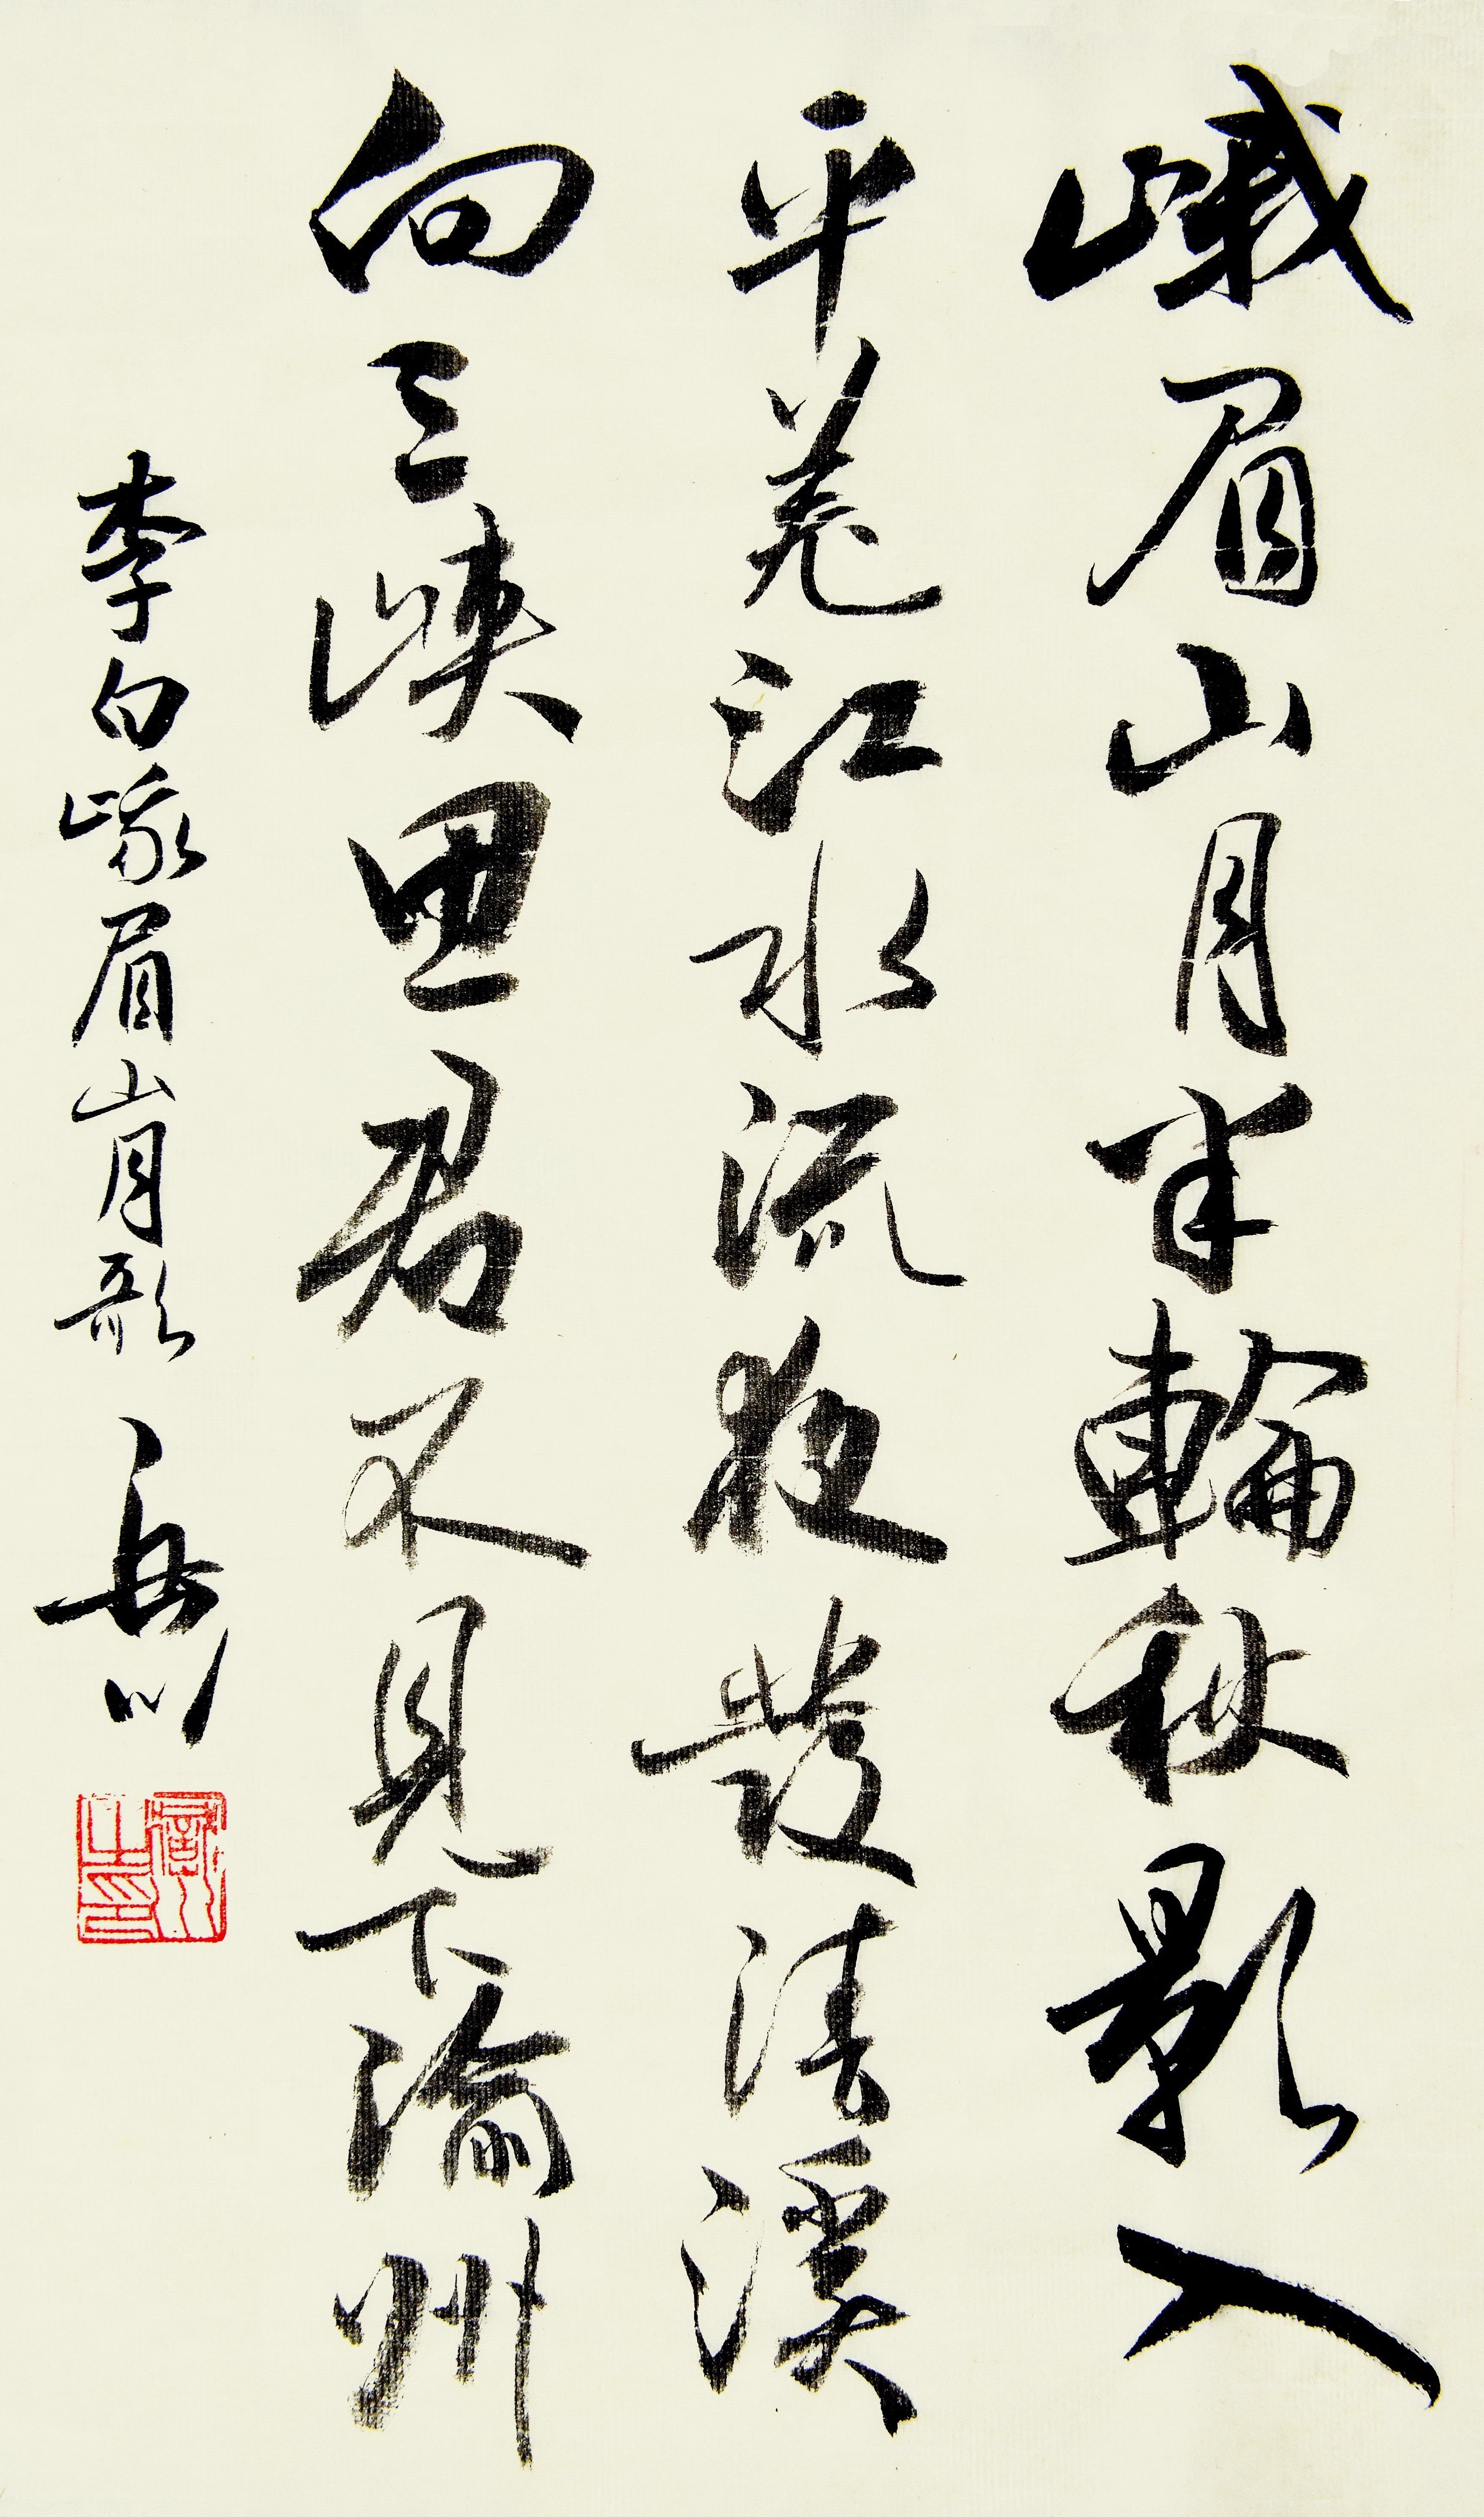 峨眉山月半輪秋影入
平羌江水流夜發清溪
向三峽思君不見下渝州
李白峨眉山月歌 岳川